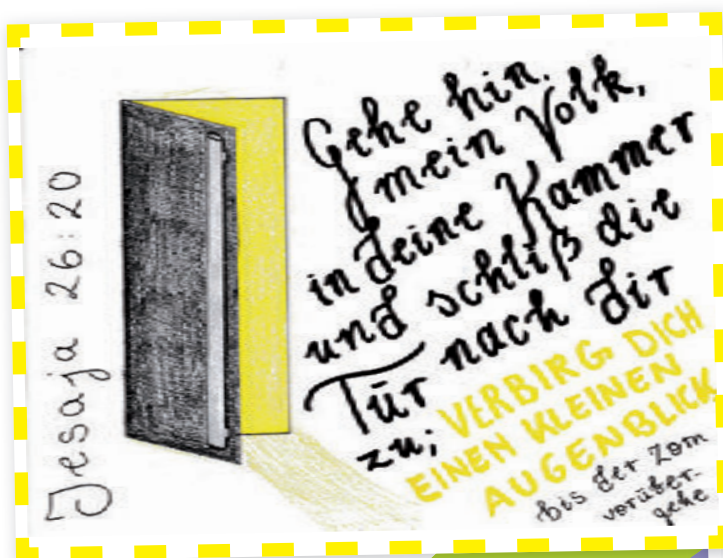 Jesaja 26:20
Gehe hin.
mein Volk,
in deine Kammer
und schliß die
Tür nach dir
zu; VERBIRG DICH
EINEN KLEINEN
AUGENBLICK
bis der Zorn
vorüber-
gehe